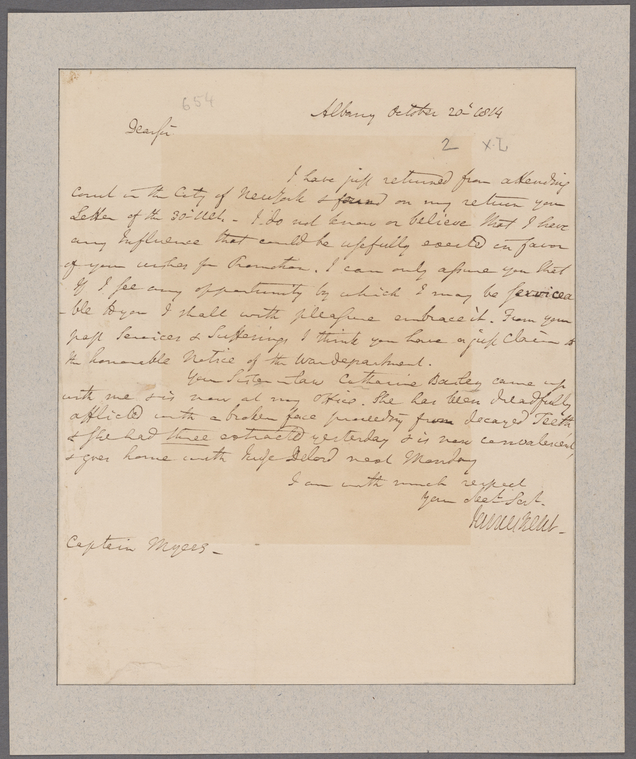 654
Albany October 20th 1814
Dear Sir
2 x.2
I have just returned from attending
court in the City of New York & found on my return your
Letter of the 30th Ult. - I do not know or believe that I have
any Influence that could be usefully exerted in favor
of your wishes for Promotion. I can only assure you that
If I see any opportunity by which I may be servicea
-ble to you I shall with pleasure embrace it. From your
past Services & Sufferings I think you have a just Claim to
the honorable Notice of the War department.
Your Sister in Law Catharine Bailey came up
with me & is now at my . She has been dreadfully
afflicted with a broken face proceeding from decayed Teeth
& she had three extracted yesterday & is now convalescent,
& goes home with Judge Delord next Monday
I am with much respect
Your Obedt Servt.
James Kent -
Captain Myers -